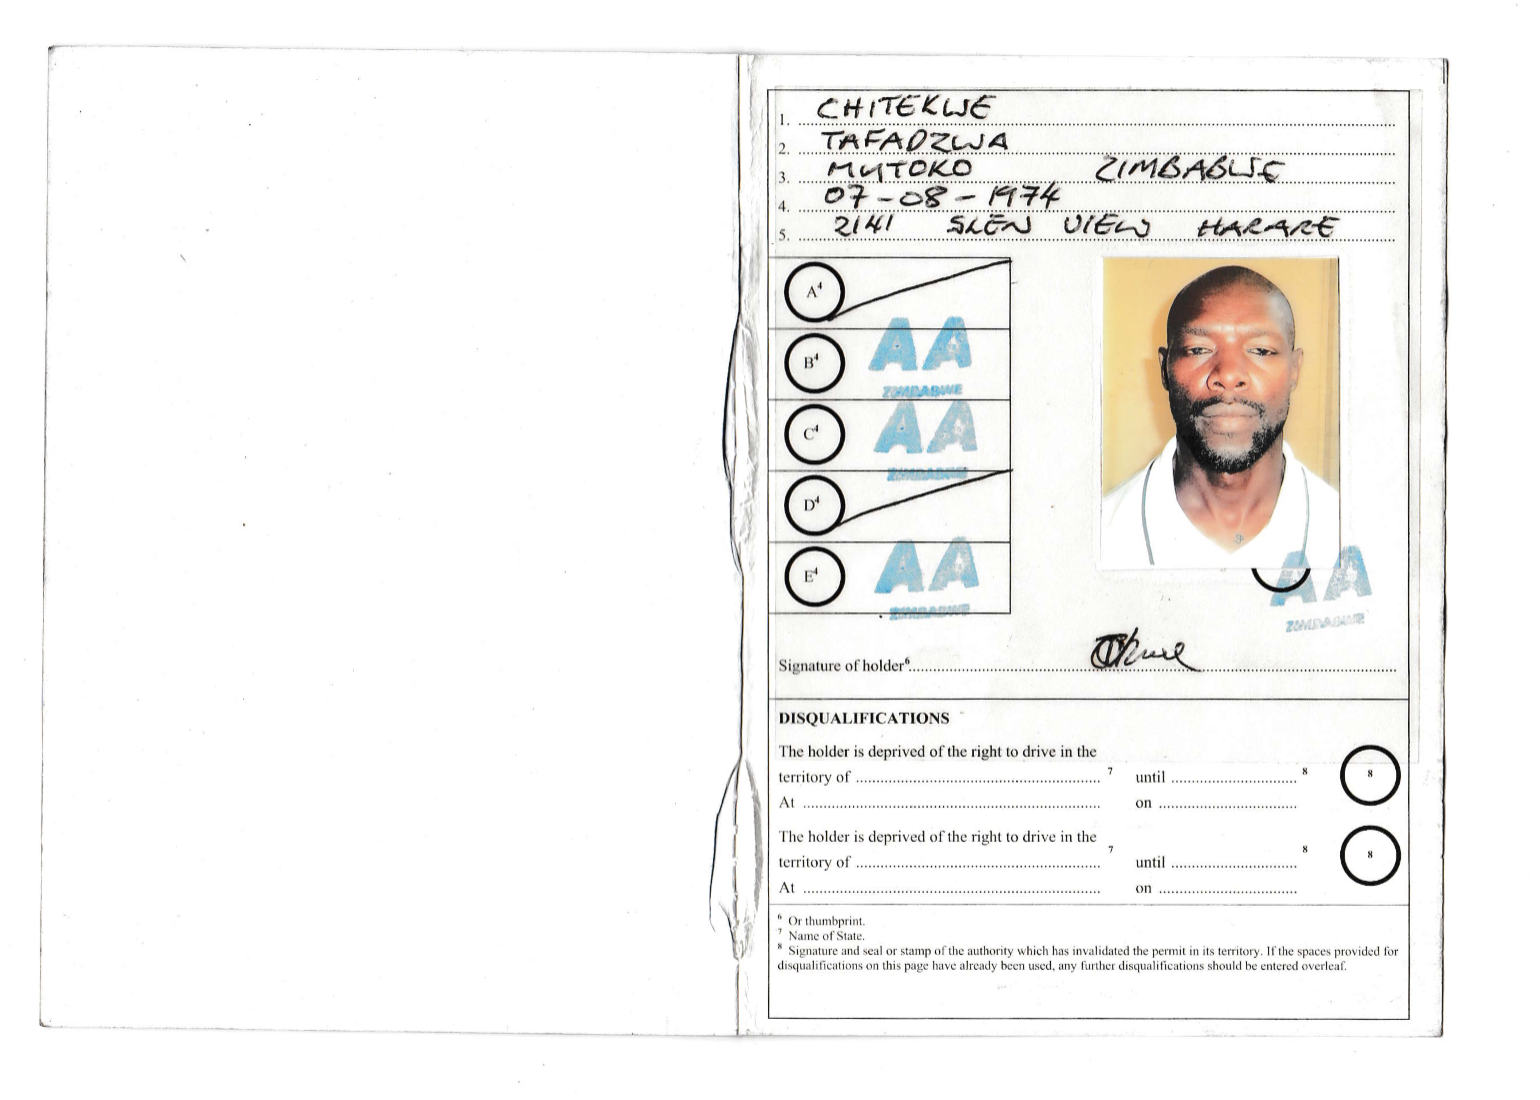 1. CHITEKWE
2. TAFADZWA
3. MUTOKO ZIMBABWE
4. 07-08-1974
5. 2141 GLEN VIEW HARARE
A⁴
B⁴ AA ZIMBABWE
C⁴ AA ZIMBABWE
D⁴
E⁴ AA ZIMBABWE
AA
ZIMBABWE
Signature of holder⁶
DISQUALIFICATIONS
The holder is deprived of the right to drive in the
territory of ⁷ until ⁸ 8
At on
The holder is deprived of the right to drive in the
territory of ⁷ until ⁸ 8
At on
⁶ Or thumbprint.
⁷ Name of State.
⁸ Signature and seal or stamp of the authority which has invalidated the permit in its territory. If the spaces provided for
disqualifications on this page have already been used, any further disqualifications should be entered overleaf.